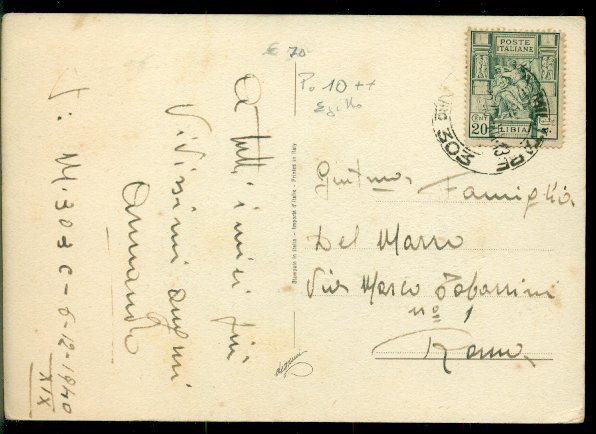 € 70-
P. 10 ++
Egitto
POSTE
ITALIANE
CENT
20
LIBIA
MILITARE
303
A tutti i miei più
Vivissimi auguri
Armando
P.M. 303 C - 6-12-1940
XIX
Stampato in Italia - Importé d'Italie - Printed in Italy
Famiglia
Del Marro
Via Marco Tabarrini
nº 1
Roma